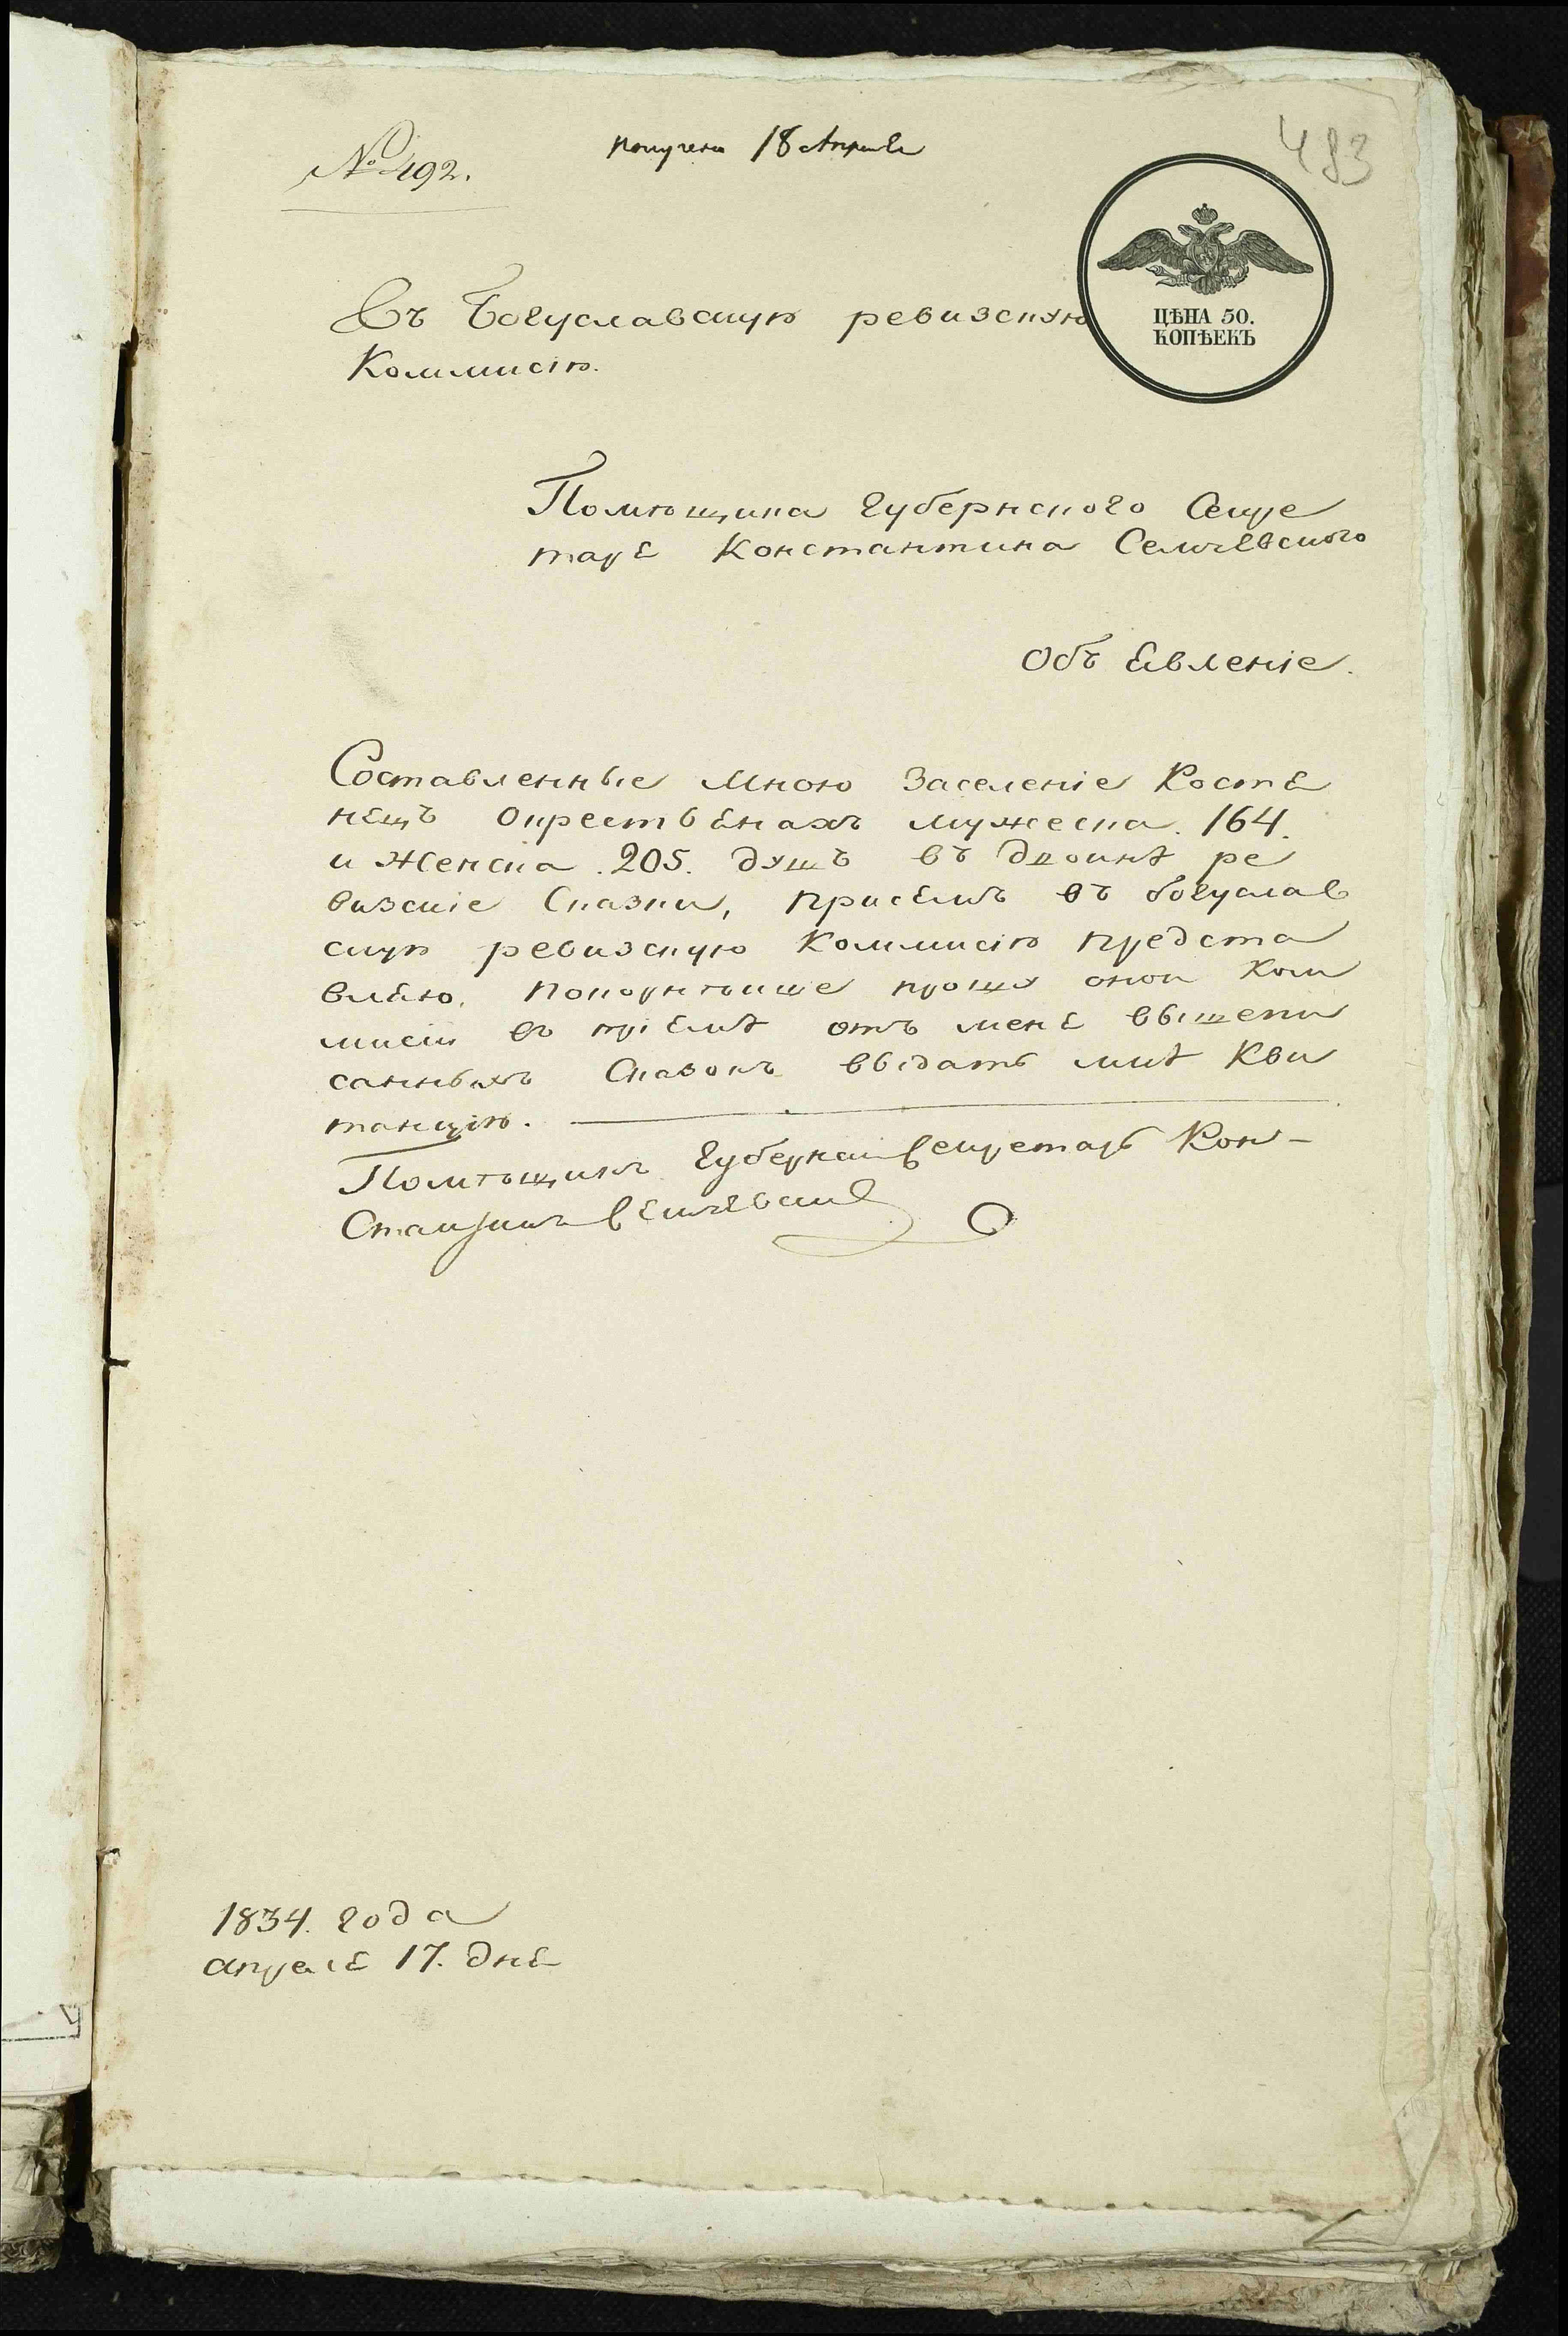 получено 18 Апреля
№ 492.
483
ЦѢНА 50.
КОПѢЕКЪ
Въ Богуславскую ревизскую
Коммисію.
Помѣщика Губернского Секре
таря Константина
Объ явленіе.
Составленные мною Заселеніе Костя
нець окрестьянахъ мужеска. 164.
и Женска. 205. душъ въ двоинѣ ре
визскіе Сказки, присемъ въ богуслав
скую ревизскую Коммисію предста
вляю. Покорнѣише прошу онои Ком
мисіи въ пріемѣ отъ меня вышепи
санныхъ Сказокъ выдать мнѣ Кви
танцію.
Помѣщикъ Губернскій Секретарь Кон-
стантинъ
1834. года
апреля 17. дня